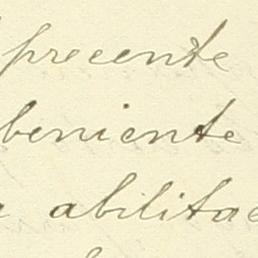 precente
beniente
abilitac